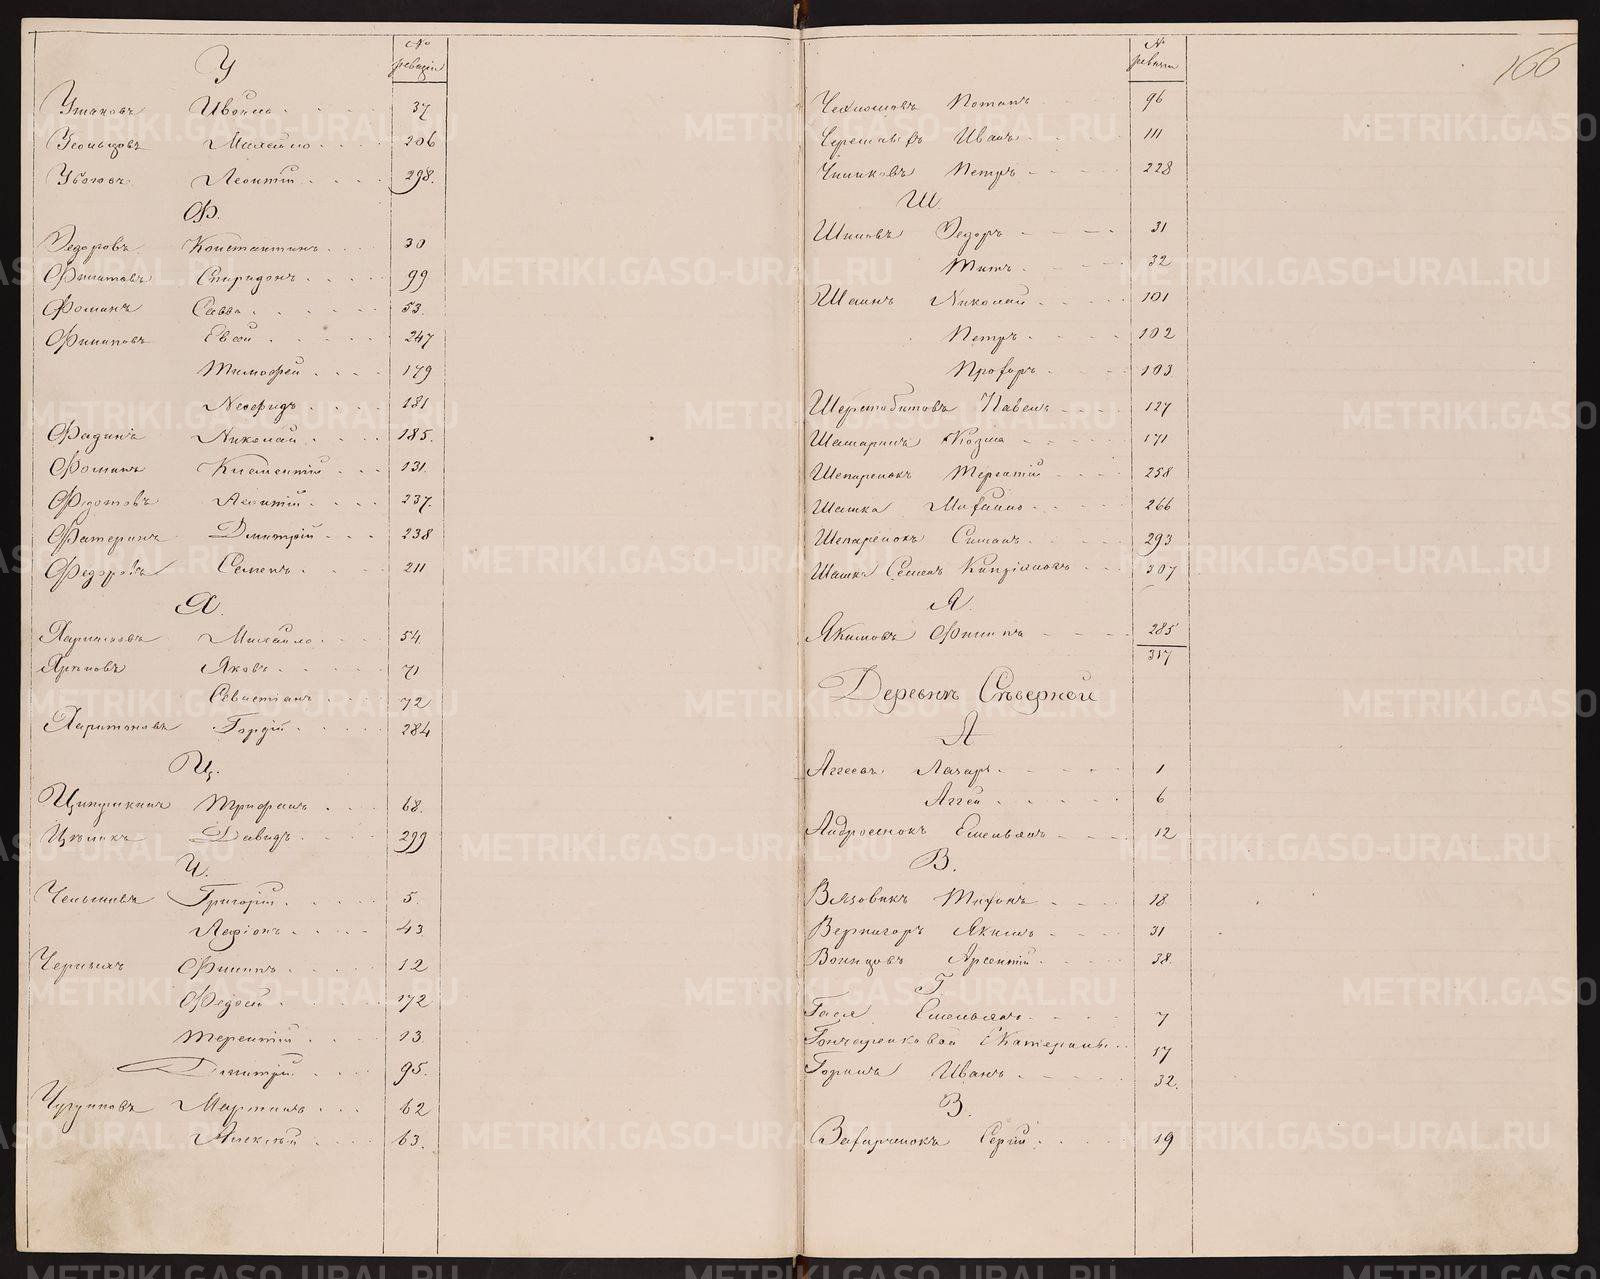 №
ревизіи
У
Ушаковъ Ивойло 37
Усольцовъ Михайло 206
Леонтій 298.
Ф.
Федоровъ Константинъ 30
Филатовъ Спиридонъ 99
Фоминъ Савва 53.
Филиповъ Евсей 247
Тимофей 179
181
Фадинъ Николай 185.
Фоминъ Климентій 131.
Федотовъ Леонтій 237.
Фатеринъ Дмитрій 238
Федоровъ Семенъ 211
Х.
Михайло 54
Яковъ 71
Севастіанъ 72
Харитоновъ Гордій 284
Ц.
Трифонъ 68.
Давидъ 299
Ч.
Григорій 5.
Ларіонъ 43
Черныхъ Филипъ 12
Федосій 172
Терентій 13
Дмитрій 95.
Чугуновъ Мартинъ 62
Алексѣй 63.
№
ревизіи
166
Потапъ 96
Иванъ 111
Петръ 228
Ш.
Шиповъ Федоръ 31
Титъ 32
Шаинъ Николай 101
Петръ 102
Прохоръ 103
Павелъ 127
Шатаринъ Козма 171
Шепаренокъ Терентій 258
Шашка Михайло 266
Шепаренокъ Симонъ 293
Шашка Семенъ 307
Я.
Якимовъ Филипъ 285
317
Деревнѣ Сѣверной
А
Аггеевъ Лазарь 1
Аггей 6
Андросенокъ Емельянъ 12
В.
Вязовикъ Тихонъ 18
Вернигоръ Якимъ 31
Воинцовъ Арсентій 38
Г.
Гасея Емельянъ 7
Гончаренковой Екатерины 17
Горинъ Иванъ 32.
З.
Захарченокъ Сергій 19
METRIKI.GASO-URAL.RU